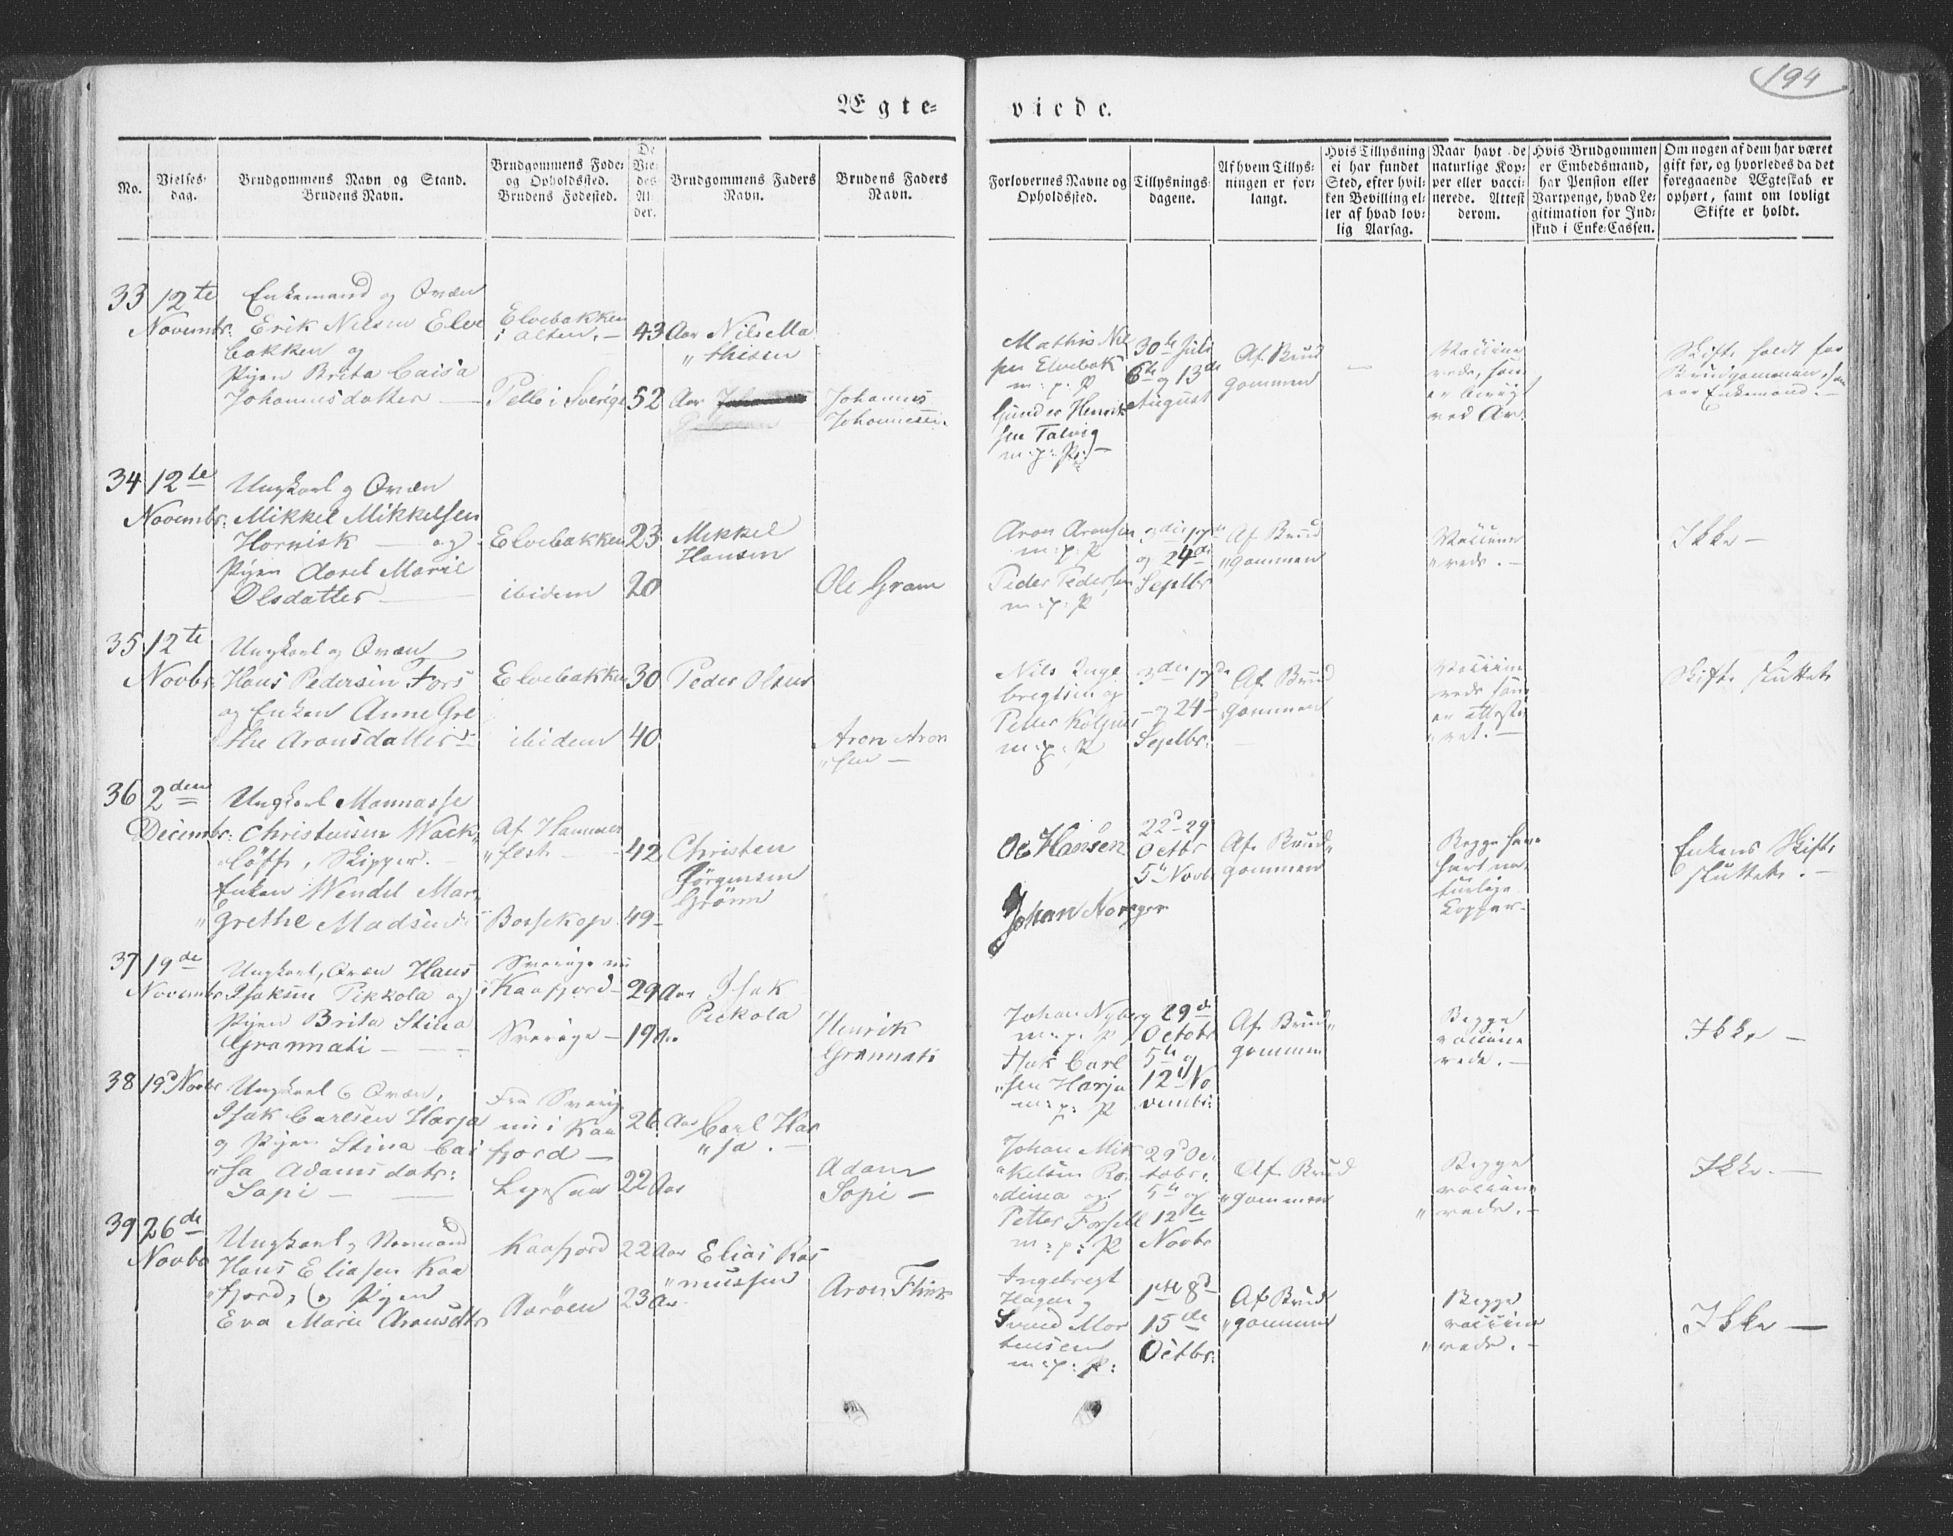 194
Ægte-
viede.
No.
Vielses-
dag.
Brudgommens Navn og Stand.
Brudens Navn.
Brudgommens Føde-
og Opholdssted.
Brudens Fødested.
De
Vie-
des
Al-
der.
Brudgommens Faders
Navn.
Brudens Faders
Navn.
Forlovernes Navne og
Opholdssted.
Tillysnings-
dagene.
Af hvem Tillys-
ningen er for-
langt.
Hvis Tillysning
ei har fundet
Sted, efter hvil-
ken Bevilling el-
ler af hvad lov-
lig Aarsag.
Naar havt de
naturlige Kop-
per eller vacci-
nerede. Attest
derom.
Hvis Brudgommen
er Embedsmand,
har Pension eller
Vartpenge, hvad Le-
gitimation for Ind-
skud i Enke-Cassen.
Om nogen af dem har været
gift før, og hvorledes da det
foregaaende Ægteskab er
ophørt, samt om lovligt
Skifte er holdt.
33 12te
Novembr.
Enkemand og Qvæn
Erik Nilsen Elve
bakken og
Pigen Brita Caisa
Johannsdatter —
Elvebakken
i Alten. —
Pello i Sverige
43 Aar
52 Aar
Nils Ma
" thisen
Johannes
Johannessen.
Mathis Nil
sen Elvebak
m: p: P
Gunder Henrik
sen Talvig
m: p: P: —
30te Juli
6te og 13de
August
Af Brud
gommen
—
Vaccine
rede, som
er bevist
ved At.
Skifte holdt for
Brudgommen, som
var Enkemand. —
34 12te
Novembr.
Ungkarl og Qvæn
Mikkel Mikkelsen
Hornisk — og
Pigen Marie
Olsdatter —
Elvebakken
ibidem
23
20
Mikkel
Hansen
Ole Gram
Aron Aronsen
m: p: P
Peder Pedersen
m: p: P
3die 17de
og 24de
Septbr
Af Brud
" gommen
Vaccine
" rede. —
Ikke —
35 12te
Novbr.
Ungkarl og Qvæn
Hans Pedersen Fors
og Enken Anne Gre
the Aronsdatter —
Elvebakken
ibidem
30
40
Peder Olsen
Aron Aron
" sen —
Nils Inge
bregtsen og
Petter
m: p: P
3die 17de
— og 24de
Septbr.
Af Brud
gommen
—
Vaccine
rede som
er atteste
ret. —
Skifte sluttet
36 2den
Decembr.
Ungkarl Mannasse
Christensen Wack
löff, Skipper. —
Enken Wendel Mar
" grethe Madsen
Af Hammer
" fest —
Bossekop
42
49 —
Christen
Jørgensen
Grönn
Oe Hansen
Johan Norager
22d 29
Octbr
5te Novb
Af Brud"
gommen
Begge have
havt na
turlige
Kopper —
Enkens Skifte
sluttet. —
37 19de
Novembr
Ungkarl, Qvæn Hans
Isaksen Pikkola og
Pigen Brita Stina
Grannati — —
Sverige nu
i Kaafjord —
Sverige —
29 Aar
19 Aar
Isak
Pickola
Henrik
Grannati
Johan Nyberg
m: p: P
Isak Carl
" sen Harju
m: p: P
29de
Octobr
5te og
12te No
vembr:
Af Brud"
gommen
Begge
vaccine
rede. —
Ikke —
38 19d Novbr
Ungkarl & Qvæn,
Isak Carlsen Harja
og Pigen Stina Cai
" sa Adamsdatr:
Sopi — —
Fra Sverig
nu i Kaa
fjord —
26 Aar
22 Aar
Carl Har
" ja. —
Adam
Sopi —
Johan Mik
" kelsen Ro
" dinea og
Petter Forsell
m: p: P
29d Oc
tobr.
5te og
12te
Novbr
Af Brud
" gommen
Begge
vaccine
" rede. —
Ikke. —
39 26de
Novbr
Ungkarl, Normand
Hans Eliasen Kaa
" fjord, og Pigen
Eva Marie Aronsdtr
Kaafjord
Aarøen
22 Aar
23 Aar
Elias Ras
" mussen
Aron Flink
Ingebregt
Hagen og
Svend Mor
tensen
m: p: P:
1ste 8d
15de
Octbr:
Af Brud
" gommen
Begge
vaccine
" rede. —
Ikke —